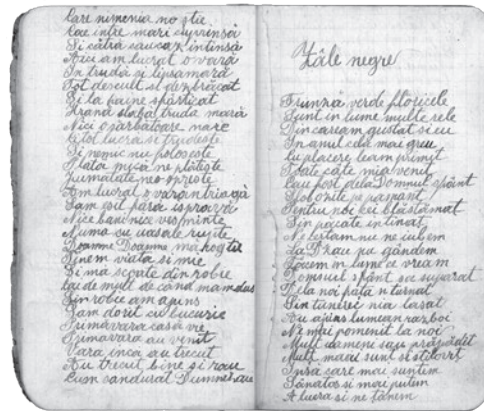 Care nimenia no știe
Cae intre mari cuprinsă
Și cătră sauca intinsă
Acu am lucrat o vară
In trudă și lipsamară
Tot descult si dezbrăcat
Si la paine
Hrana slabă truda mară
Nici o sarbatoare mare
Citol lucra se trudeste
Si nemic nu poloseste
Plata mica ne plătește
Jumatate neo oprește
Am lucrat o vara
Sam esit făsa isprovă
Nice bani nice vesminte
Numa cu oasale
Doamne Doamne mă rog tie
Tinem viata si mie
Si mă scoate din robie
că de mult de când mam dus
Sin robie am apus
Sam dorit cu bucurie
Primăvara casă vie
Primăvara au venit
Vara inca au trecut
Au trecut bine si rau
Cum sandurat Dumnezau
Zâle negre
Frunză verde flosicele
Sunt in lume multe rele
Din care am gustat si eu
In anul cela mai greu
Cu placere leam primit
Toate câte mia venit
Cau fost dela Domnul sfânt
Slobozite pe pamant
Pentru noi cei blăstămat
Din pacate
Ne certam nu ne iubim
La D'zau nu gândem
Facem in lume ce vream
Domnul sfânt sa suparat
Dela noi fata n turnat
Sin tuneric nia lasat
Au apus lumean razboi
Ne mai pomenit la noi
Mult oameni sau prăpădit
Mult maai sunt si
Insa care mai suntim
Sănatos si mai putem
A lucra si ne tânem